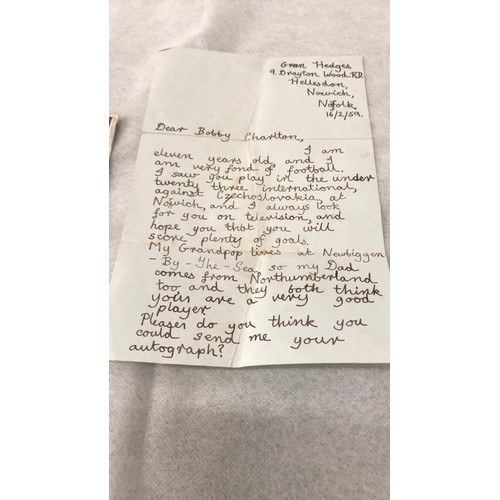 Gran Hedges,
9. Drayton Wood RD.
Hellesdon,
Norwich,
Norfolk,
16/2/59.
Dear Bobby Charlton,
I am
eleven years old, and I
am very fond of football.
I saw you play in the under
twenty three international,
against Czechoslovakia at
Norwich, and I always look
for you on television, and
hope you that you will
score plenty of goals.
My Grandpop lives at Newbiggen
- By - The - Sea so my Dad
comes from Northumberland
too and they both think
your are a very good
player
Pleases do you think you
could send me your
autograph?